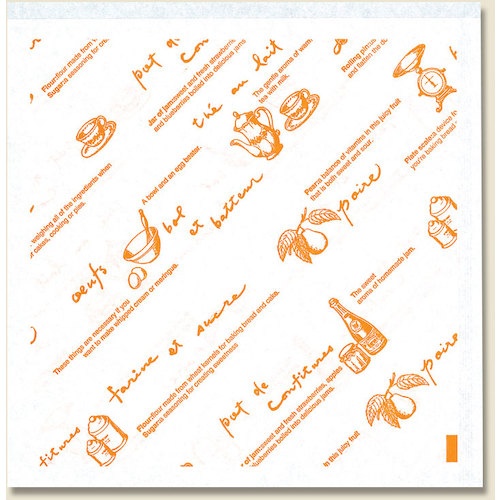 Flourflour made from
Sugar:a seasoning for cre
pot de
Con
Jar of jam:sweet and fresh strawberrie
and blueberries boiled into delicious jams
thé au lait
The gentle aroma of warm
tea with milk.
Rolling pin:
and flatten the do
weighing all of the ingredients when
cakes, cooking or pies.
A bowl and an egg beater.
Pear:a balance of vitamins in this juicy fruit
that is both sweet and sour.
Plate scale:a device fo
you're baking bread
oeufs
bol et batteur
poire
These things are necessary if you
want to make whipped cream or meringue.
The sweet
aroma of homemade jam.
farine et sucre
Flour:flour made from wheat kernels for baking bread and cake.
Sugar:a seasoning for creating sweetness
pot de
Confitures
poire
fitures
r of jam:sweet and fresh strawberries, apples
blueberries boiled into delicious jams.
in this juicy fruit